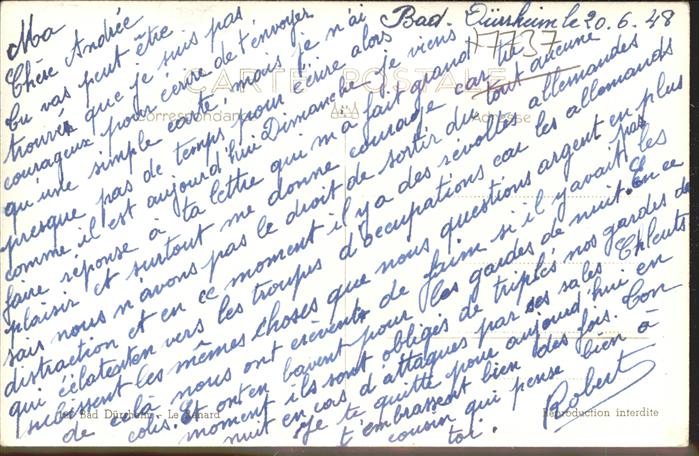 Bad-Dürrheim le 20.6.48
17737
CARTE POSTALE
Correspondance
Adresse
Ma
Chere Andrée
Tu vas peut être
trouver que je suis pas
courageux pour écrire de t'envoyer
qu'une simple carte, mais je n'ai
presque pas de temps pour écrire alors
comme il est aujourd'hui Dimanche je viens
faire réponse à ta lettre qui m'a fait grand
plaisir et surtout me donne courage car tu
sais nous n'avons pas le droit de sortir du tout aucune
distraction et en ce moment il y a des révoltes allemandes
qui éclatent envers les troupes d'occupations car les allemands
subissent les mêmes choses que nous questions argent en plus
de cela nous ont crèvent de faim si il y avait pas les
colis. Et ont en bavent pour les gardes de nuit. En ce
moment ils sont obligés de triplés nos gardes de
nuit en cas d'attaques par ses sales Chleuts
Je te quitte pour aujourd'hui en
t'embrassent bien des fois. Ton
cousin qui pense bien à
toi.
Robert
Bad Dürrheim - Le Renard
Reproduction interdite